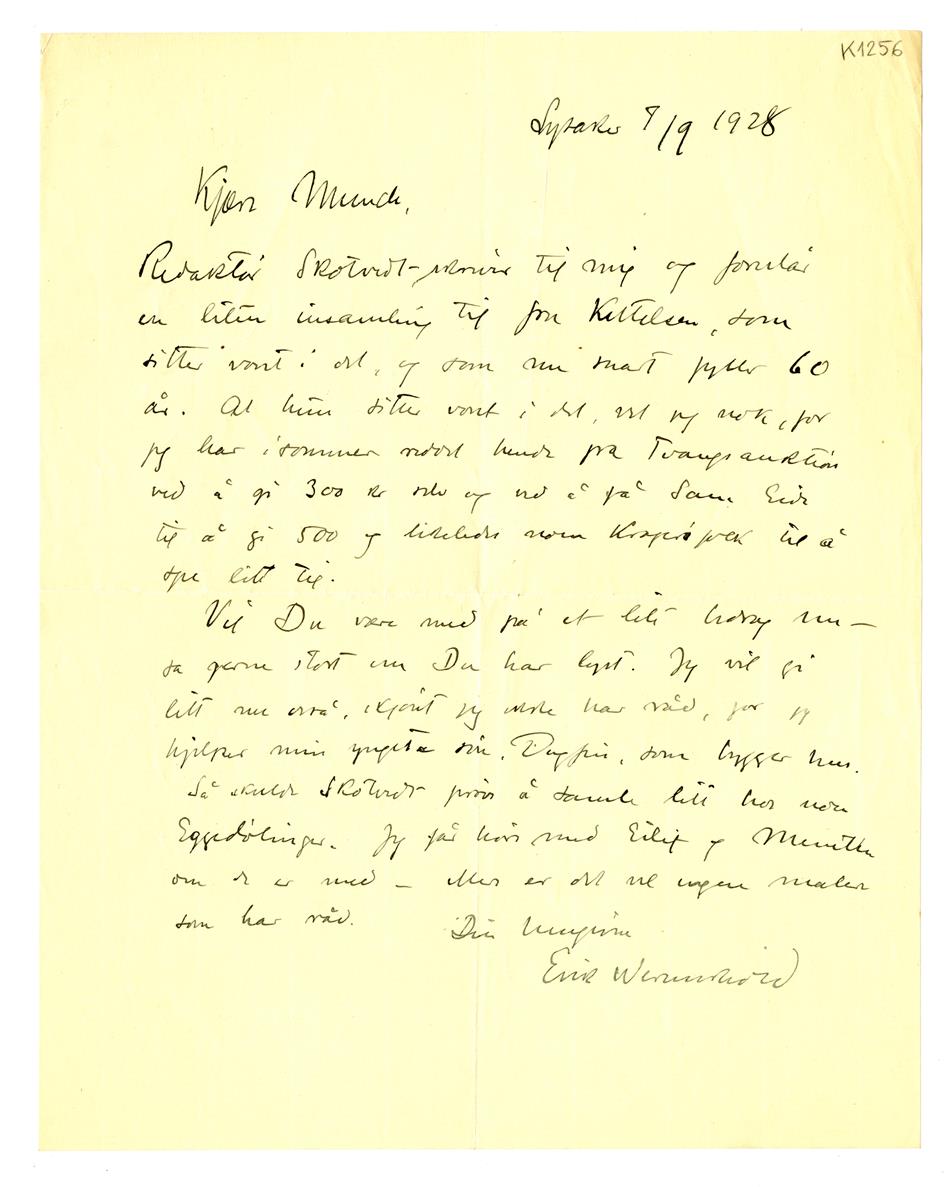 K1256
Lysaker 8/9 1928
Kjære Munch,
Redaktör Skotvedt skriver til mig og foreslår
en liten insamling til fru Kittelsen, som
sitter vont i det, og som nu snart fyller 60
år. At hun sitter vont i det, vet jeg nok, for
jeg har i sommer reddet hende fra Tvangsauktion
ved å gi 300 kr selv og ved å få Sam. Eide
til å gi 500 og likeledes noen Kragerøfolk til å
spe litt til.
Vil Du være med på et litet bidrag nu –
sa gerne stort om Du har lyst. Jeg vil gi
litt nu også, skjönt jeg ikke har råd, for jeg
hjelper min yngste sön, Dagfin, som bygger hus.
Så skulde Skotvedt pröve å samle litt hos noen
Eggedölinger. Jeg får höre med Eilif og Munthe
om de er med – Mer er det vel ingen malere
som har råd.
Din hengivne
Erik Werenskiold